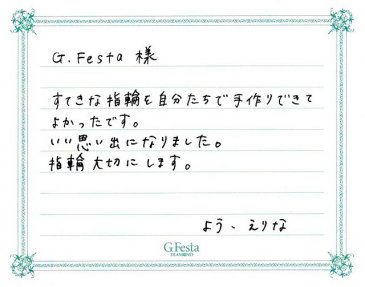 G.Festa 様
すてきな指輪を自分たちで手作りできて
よかったです。
いい思い出になりました。
指輪大切にします。
よう、えりな
G.Festa
DIAMOND